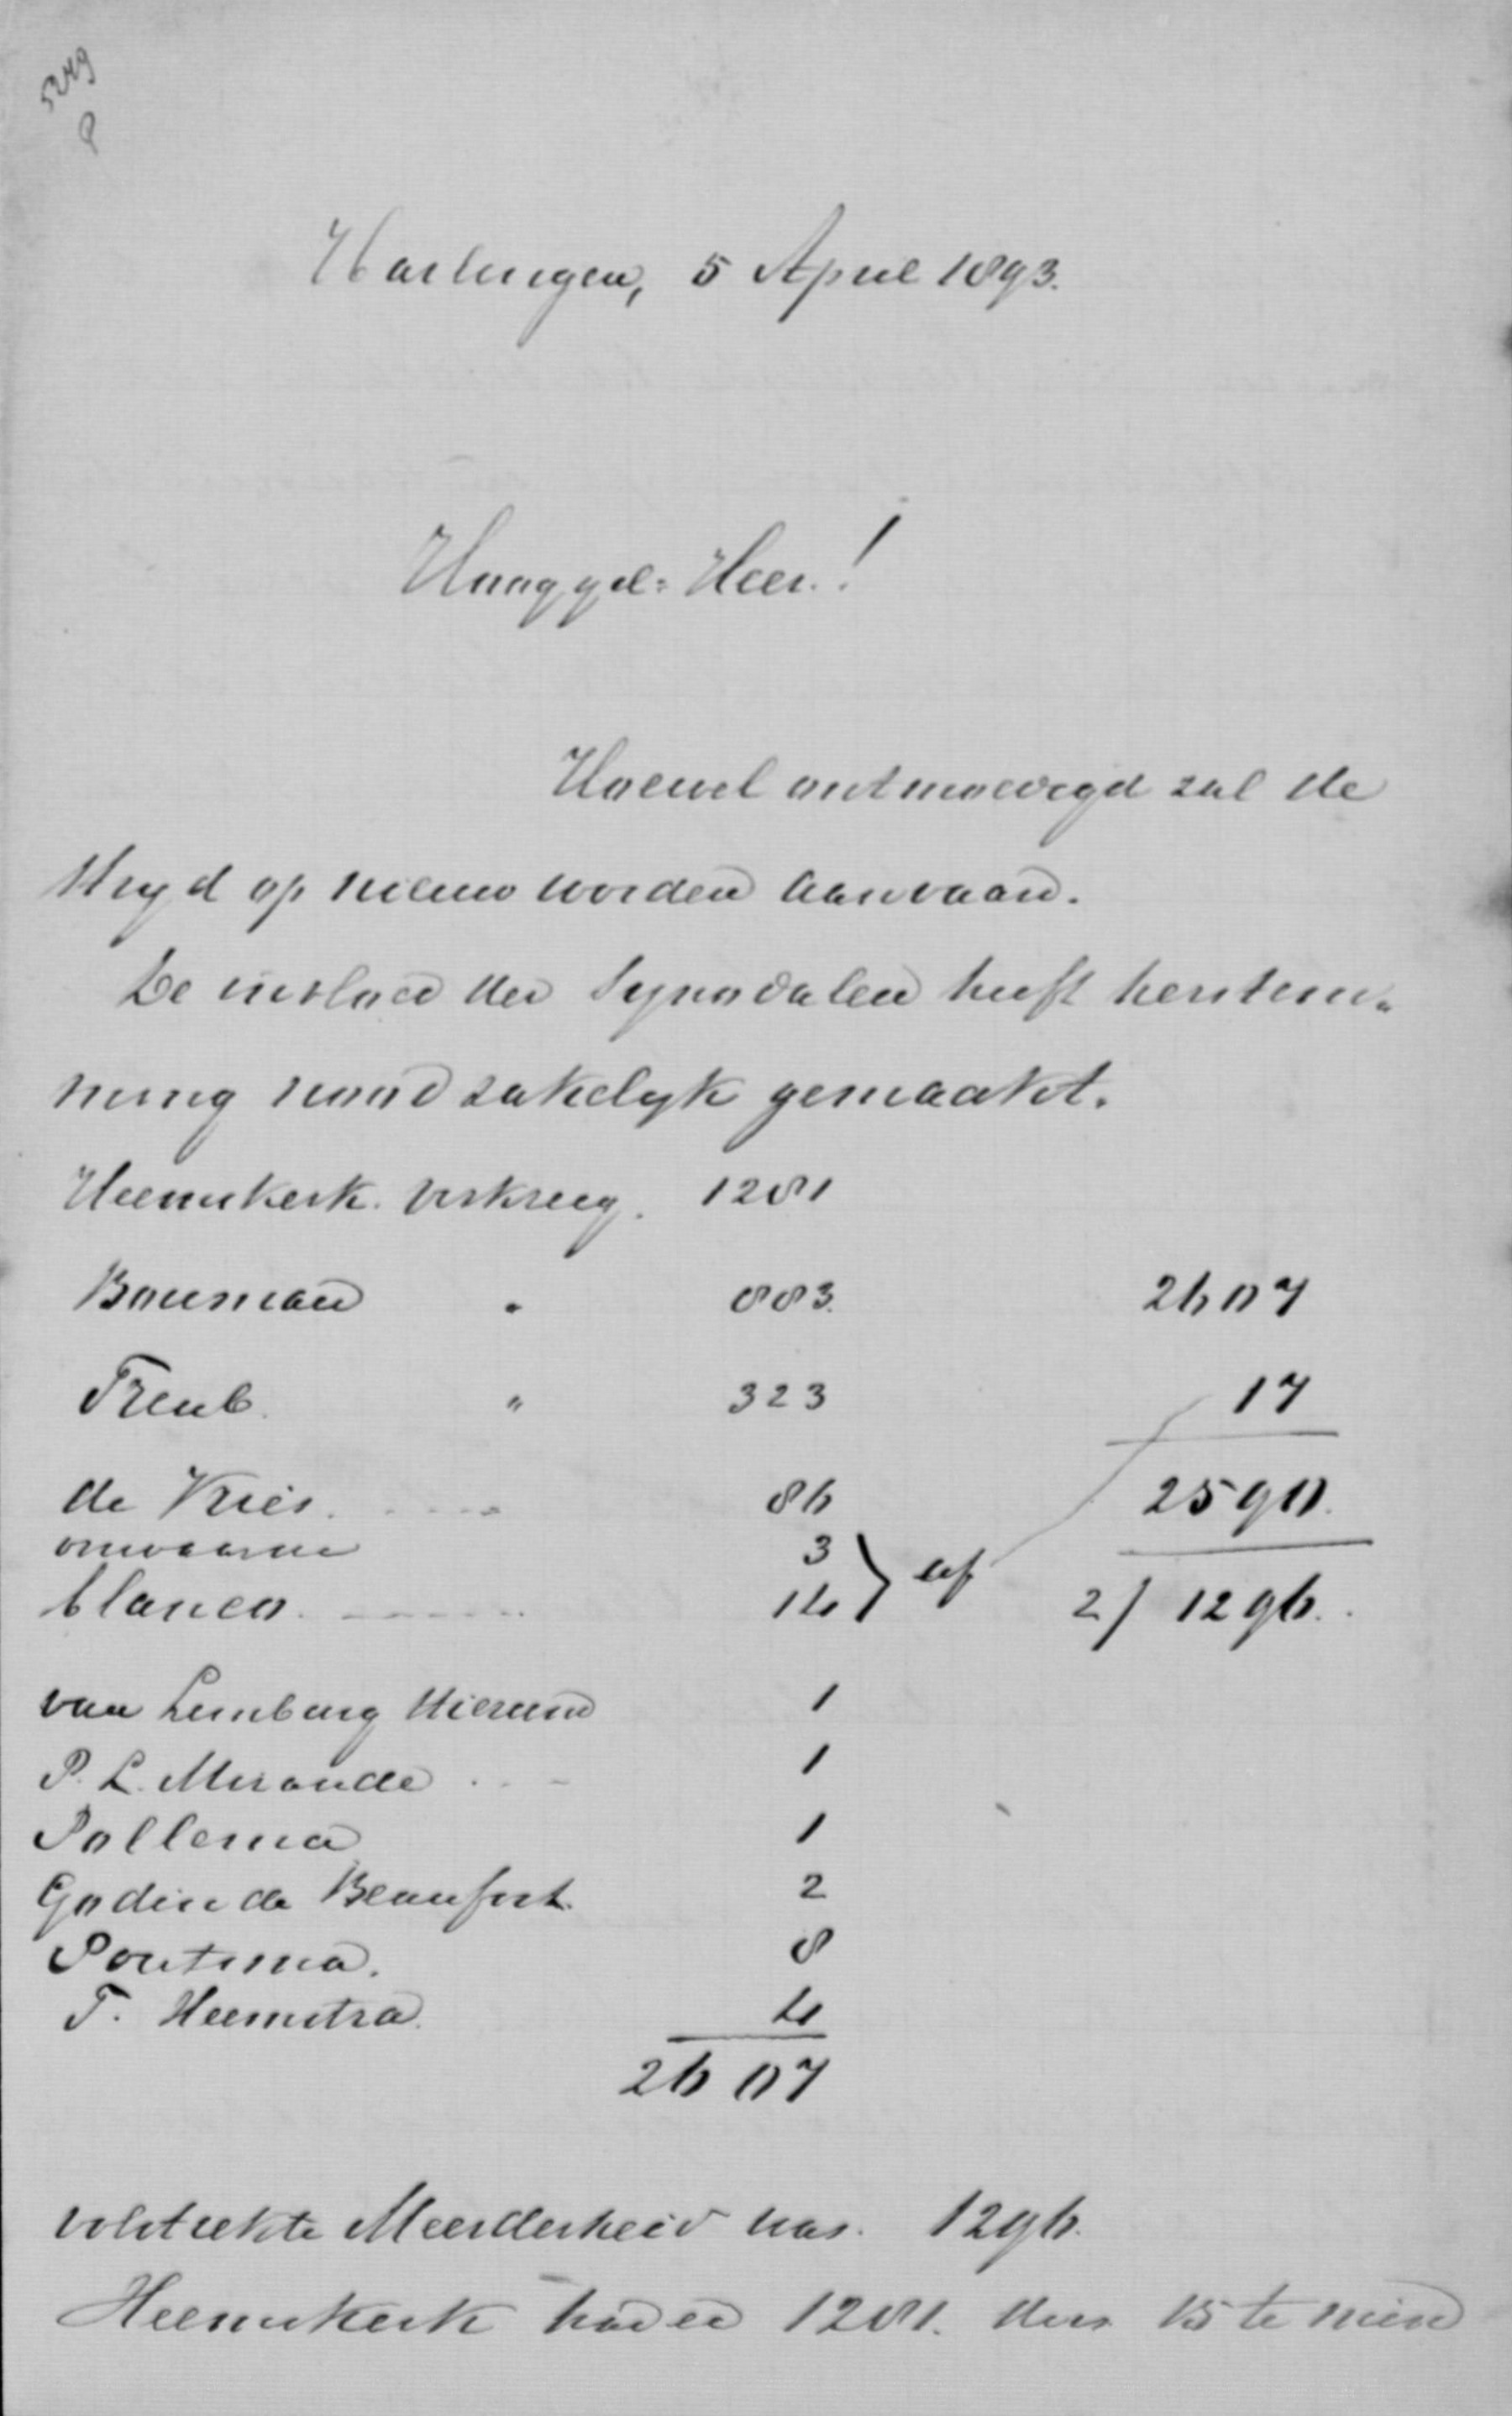 5249
Harlingen, 5 April 1893.
Hooggel: Heer!
Hoewel ontmoedigd zal de
strijd op nieuw worden aanvaard.
De invloed der Synodalen heeft herstem-
ming noodzakelyk gemaakt.
Heemskerk verkreeg. 1281
Bouman " 883. 2607
Treub. " 323 17
de Vries. 86 2590.
onwaarde 3 } af
blanco. 14 2/ 1296.
van Limburg Stierum 1
P. L. Mirande 1
Pollema 1
Godin de Beaufort. 2
Poutsma. 8
T. Heemstra. 4
2607
volstrekte Meerderheid was. 1296.
Heemskerk had er 1281. dus 15 te min